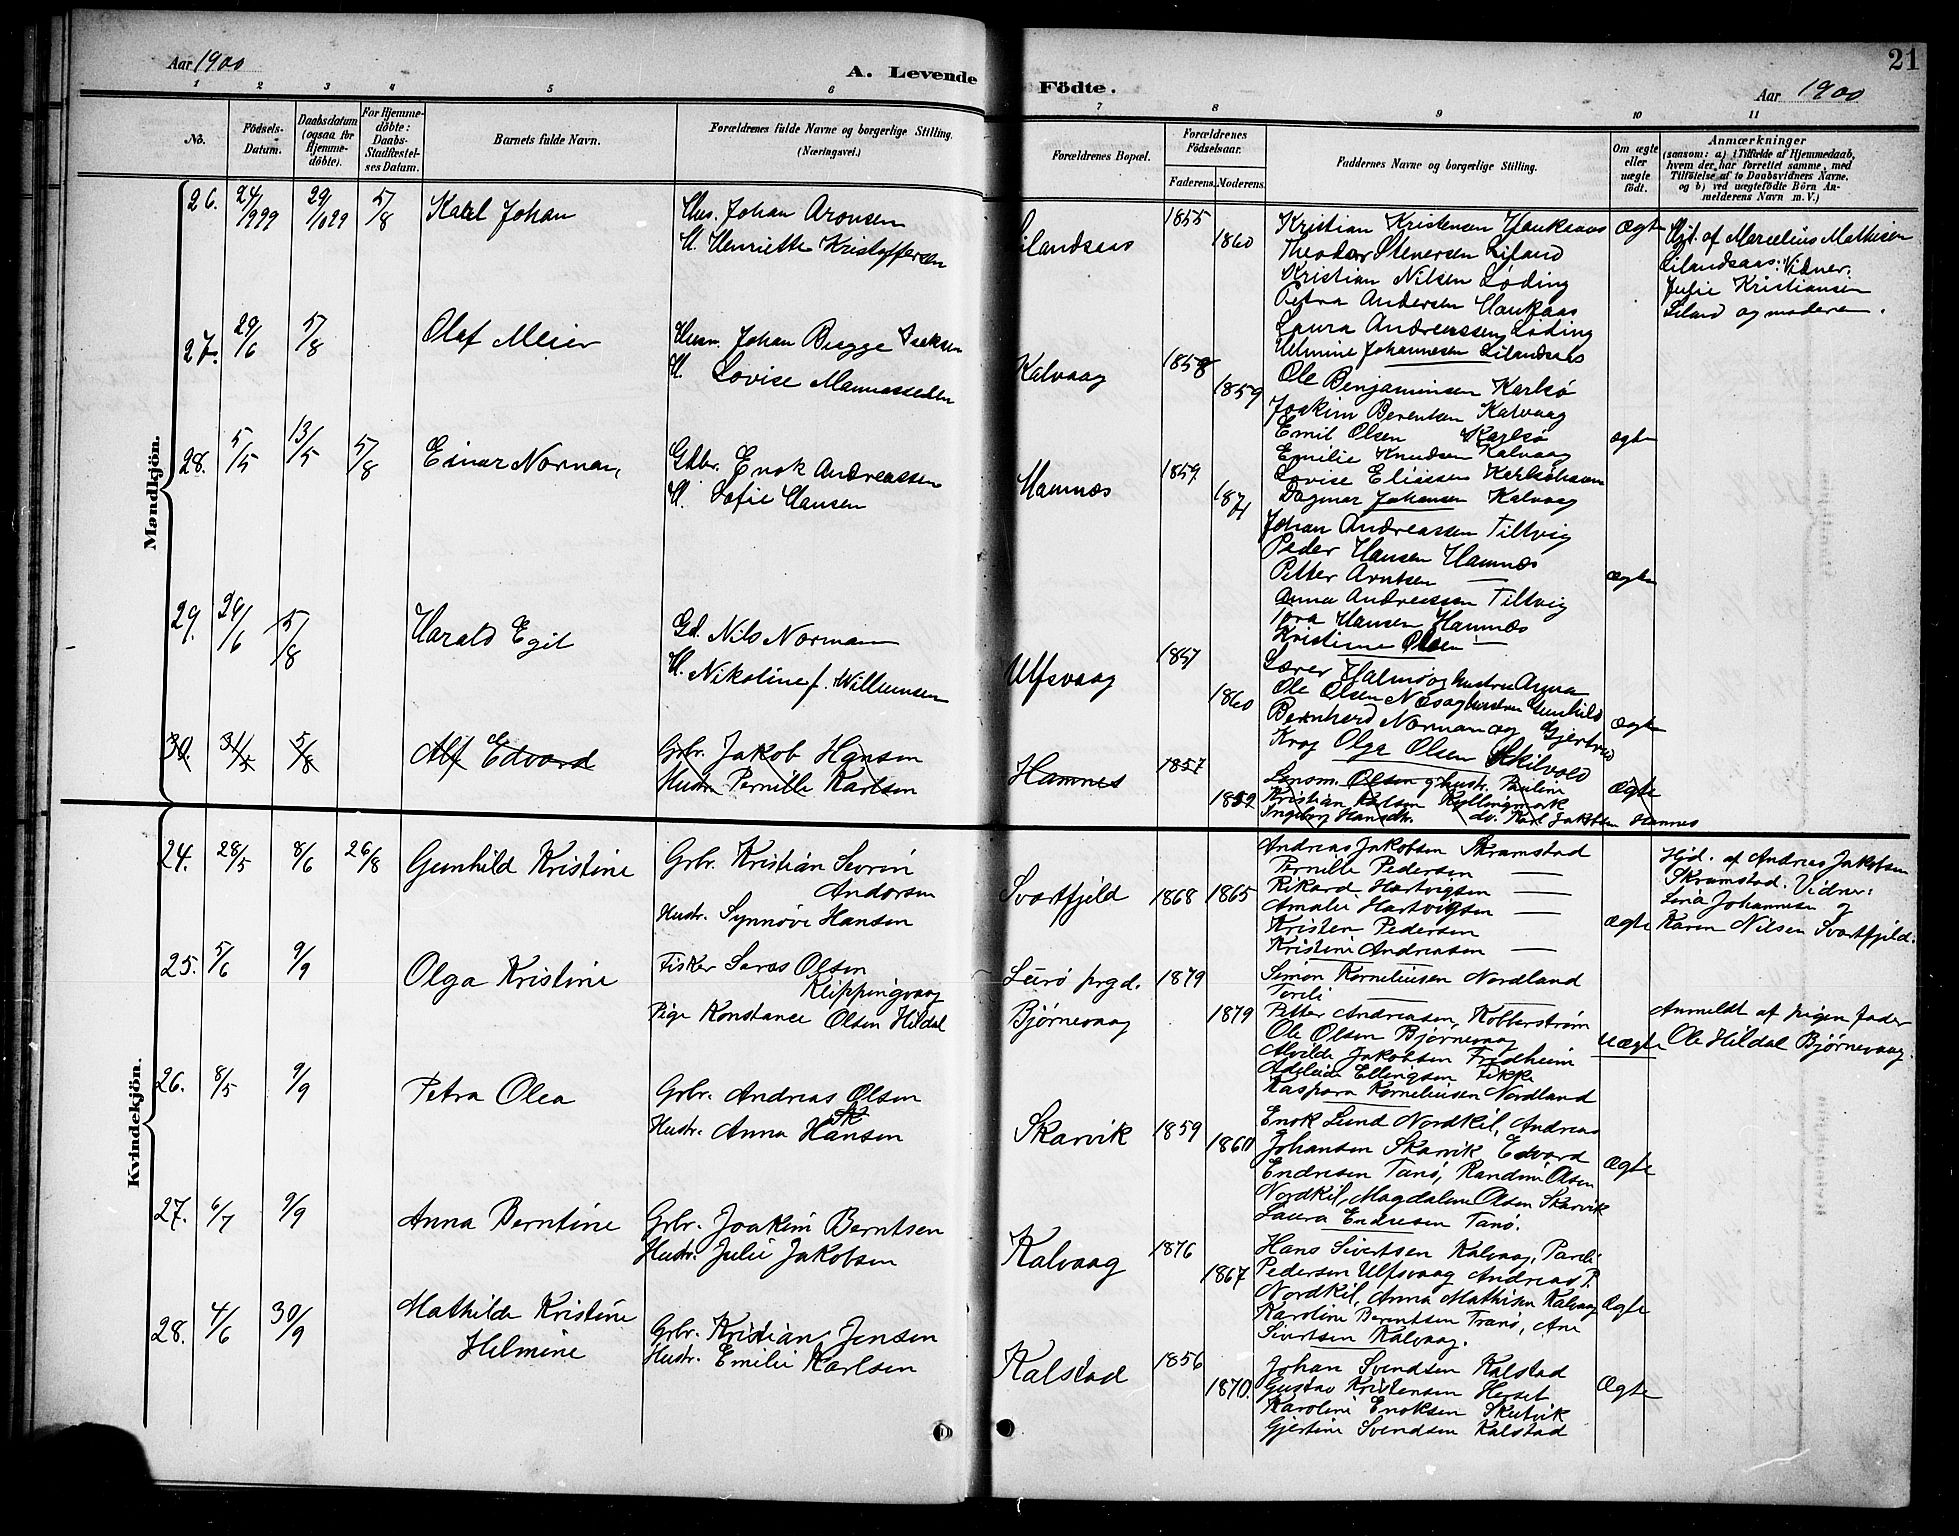 Aar 1900
A. Levende
1 2 3 4 5 6
No.
Födsels-
Datum.
Daabsdatum
(ogsaa for
Hjemme-
döbte).
For Hjemme-
döbte:
Daabs-
Stadfæstel-
ses Datum.
Barnets fulde Navn.
Forældrenes fulde Navne og borgerlige Stilling.
(Næringsvei.)
Mandkjön.
26. 24/999 29/1099 5/8 Karl Johan
Hus. Johan Aronsen
H. Henriette Kristoffersen
27. 29/6 5/8 Olaf Meier
Husm. Johan Bugge Isaksen
H. Lovise Mannassedtr
28. 5/5 13/5 5/8 Einar Norman,
Gdbr. Enok Andreassen
H. Sofie Hansen
29. 24/6 5/8 Harald Egil
Gd. Nils Normann
H. Nikoline f. Willumsen
30. 31/5 5/8 Alf Edvard
Grbr. Jakob Hansen
Hustr. Pernille Karlsen
Kvindekjön.
24. 28/5 8/6 26/8 Gunhild Kristine
Grbr. Kristian Severin
Andersen
Hustr. Synnøve Hansen
25. 5/6 9/9 Olga Kristine
Fisker Saras Olsen
Klippingvaag
Pige Konstance Olsen Hildal
26. 8/5 9/9 Petra Olea
Grbr. Andreas Olsen
Hustr. Anna Hansen
27. 6/7 9/9 Anna Berntine
Grbr. Joakim Berntsen
Hustr. Julie Jakobsen
28. 4/6 30/9 Mathilde Kristine
Helmine
Grbr. Kristian Jensen
Hustr. Emilie Karlsen
21
Födte.
Aar 1900
7 8 9 10 11
Forældrenes Bopæl.
Forældrenes
Födselsaar.
Faderens. Moderens.
Faddernes Navne og borgerlige Stilling.
Om ægte
eller
uægte
födt.
Anmærkninger
(saasom: a) i Tilfælde af Hjemmedaab,
hvem der har forrettet samme, med
Tilföielse af to Daabsvidners Navne,
og b) ved uægtefödte Börn An-
melderens Navn m. V.)
Lilandsaas 1855 1860
Kristian Kristensen Haukaas
Theodor Stenersen Liland
Kristian Nilsen Løding
Petra Andersen Haukaas
Laura Andreassen Løding
Helmine Johannesen Lilandsaas
Ægte
Hjd. af Marcelius Mathisen
Lilandsaas: Vidner:
Julie Kristiansen
Liland og moderen.
Kalvaag 1858 1859
Ole Benjaminsen Karlsø
Joakim Berentsen Kalvaag
Emil Olsen Karlsø
Emilie Knudsen Kalvaag
Lovise Eliasen Karlsøhavn
Dagmar Johansen Kalvaag
ægte
Hamnes 1859 1871
Johan Andreassen Tiltvig
Peder Hansen Hamnes
Petter Arntsen —
Anna Andreassen Tiltvig
Tora Hansen Hamnes
Kristine Olsen —
Ægte
Ulfsvaag 1857 1860
Lærer Halmøy og hustru Anna
Ole Olsen Næs og hustru Gunhild
Bernhard Norman og Gjertrud
Krog Olga Olsen Skilvold
Ægte
Hamnes 1857 1859
Lensm. Olsen og hustr. Pauline
Kristian Karlsen Kjøllingmark
Ingeborg Hansdtr. Karl Jakobsen Hamnes
Ægte
Svartfjeld 1868 1865
Andreas Jakobsen Skramstad
Pernille Pedersen —
Rikard Hartvigsen —
Amalie Hartvigsen —
Kristen Pedersen
Kristine Andreasen —
Ægte
Hjd. af Andreas Jakobsen
Skramstad. Vidner:
Lina Johannesen og
Karen Nilsen Svartfjeld.
Leirø prgd. 1879
Bjørnevaag 1879
Simon Korneliusen Nordland
Torli —
Petter Andreasen, Kobberstrøm
Ole Olsen Bjørnevaag
Alvilde Jakobsen Fredheim
Adelaide Ellingsen
Kaspara Korneliusen Nordland
Uægte
Anmeldt af pigens fader
Ole Hildal Bjørnevaag.
Skarvik 1859 1860
Enok Lund Nordkil, Andreas
Johansen Skarvik Edvard
Endresen Tanø, Randine Olsen
Nordkil, Magdalene Olsen Skarvik
Laura Endresen Tanø.
Ægte
Kalvaag 1876 1867
Hans Sivertsen Kalvaag, Pareli
Pedersen Ulfsvaag Andreas P.
Nordkil, Anna Mathisen Kalvaag
Karoline Berntsen Tranø, Ane
Sivertsen Kalvaag.
Ægte
Kalstad 1856 1870.
Johan Svendsen Kalstad
Gustav Kristensen Herset
Karoline Enoksen Skutvik
Gjertine Svendsen Kalstad
Ægte